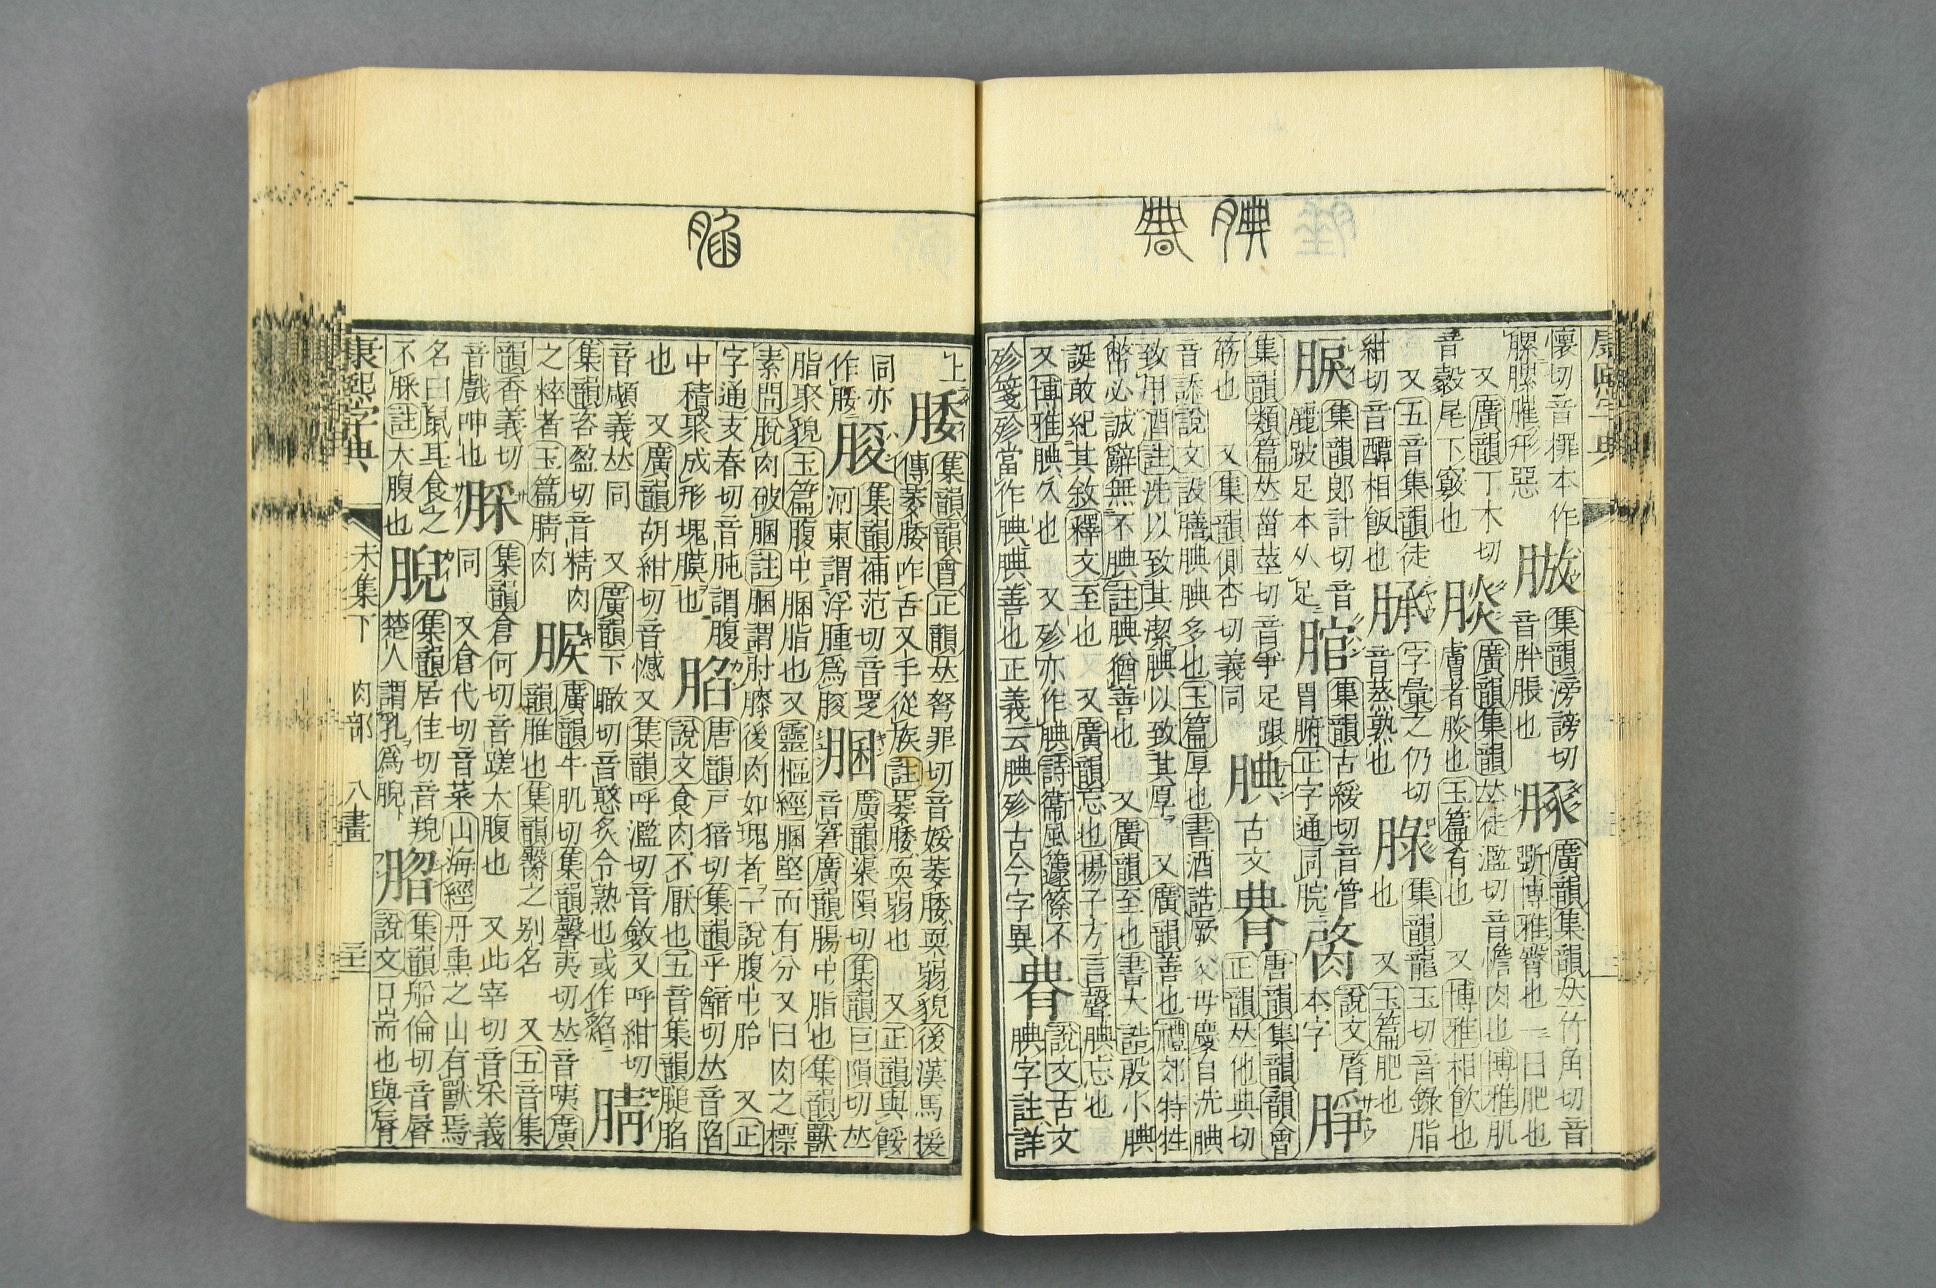 懷切音 本作
腫形惡
集韻滂謗切
音胖脹也
廣韻集韻𠀤竹角切音
斲博雅臀也一曰肥也
又廣韻丁木切
音豰尾下竅也
腅
廣韻集韻𠀤徒濫切音憺肉也博雅肌
膚者腅也玉篇肴也 又博雅相飲也
又五音集韻徒
紺切音醰相飯也
字彙之仍切
音蒸熟也
集韻龍玉切音錄脂
也 又玉篇肥也
集韻郎計切音
跛足本从足
集韻古緩切音管
胃腑正字通同脘
說文 本字
集韻類篇𠀤甾莖切音爭足跟
筋也 又集韻側杏切義同
腆
古文
唐韻集韻韻會
正韻𠀤他典切
音 說文設膳腆腆多也玉篇厚也書酒誥厥父母慶自洗腆
致用酒註洗以致其潔腆以致其厚 又廣韻善也禮郊特牲
幣必誠辭無不腆註腆猶善也 又廣韻至也書大誥殷小腆
誕敢紀其敘釋文至也 又廣韻忘也揚子方言聲腆忘也
又博雅腆久也 又殄亦作腆詩衞風籧篨不
殄箋殄當作腆腆善也正義云腆殄古今字異
說文古文
腆字註詳
上
腇
集韻韻會正韻𠀤弩罪切音 萎腇耎弱貌後漢馬援
傳萎腇咋舌又手從族註萎腇耎弱也 又正韻與餒
同亦
作腇
集韻補范切音
河東謂浮腫爲
䐃
廣韻渠隕切集韻巨隕切𠀤
音窘廣韻腸中脂也集韻獸
脂聚貌玉篇腹中䐃脂也又靈樞經䐃堅而有分又曰肉之標
素問脫肉破䐃註䐃謂肘膝後肉如塊者 一說腹中胎 又正
字通支春切音肫謂腹
中積聚成形塊膜也
䐄
唐韻戸 切集韻乎韽切𠀤音陷
說文食肉不厭也五音集韻 䐄
也 又廣韻胡紺切音憾又集韻呼濫切音 又呼紺切
音顑義𠀤同 又廣韻下瞰切音憨炙令熟也或作
腈
集韻咨盈切音精肉
之粹者玉篇腈肉
廣韻牛肌切集韻馨夷切𠀤音咦廣
韻脽也集韻臀之别名 又五音集
韻香義切
音戲呻也
䐆
集韻倉何切音蹉大腹也 又此宰切音采義
同 又倉代切音菜山海經丹熏之山有獸焉
名曰鼠耳食之
不䐆註大腹也
集韻居佳切音
楚人謂乳爲
集韻船倫切音脣
說文口耑也與脣
康熙字典 未集下 肉部 八畫